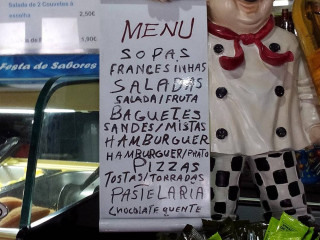 Salada de 2 Couvetes à
2,50€
1,90€
Festa de Sabores
MENU
SOPAS
FRANCESINHAS
SALADAS
SALADA/FRUTA
BAGUETES
SANDES/MISTAS
HAMBURGUER
HAMBURGUER/PRATO
PIZZAS
TOSTAS/TORRADAS
PASTELARIA
CHOCOLATE QUENTE